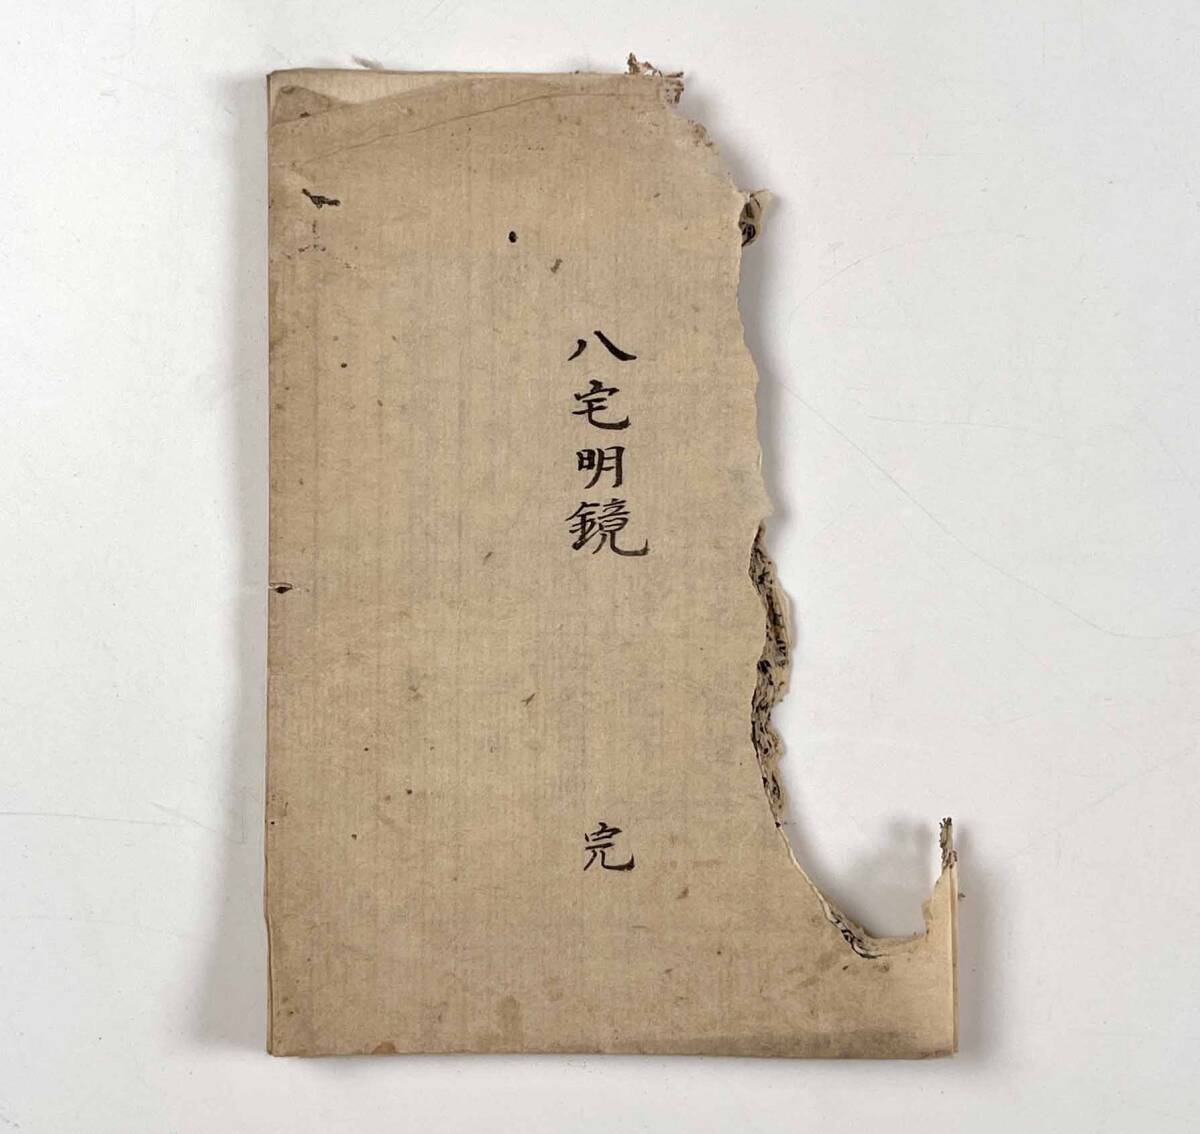 八宅明鏡
完